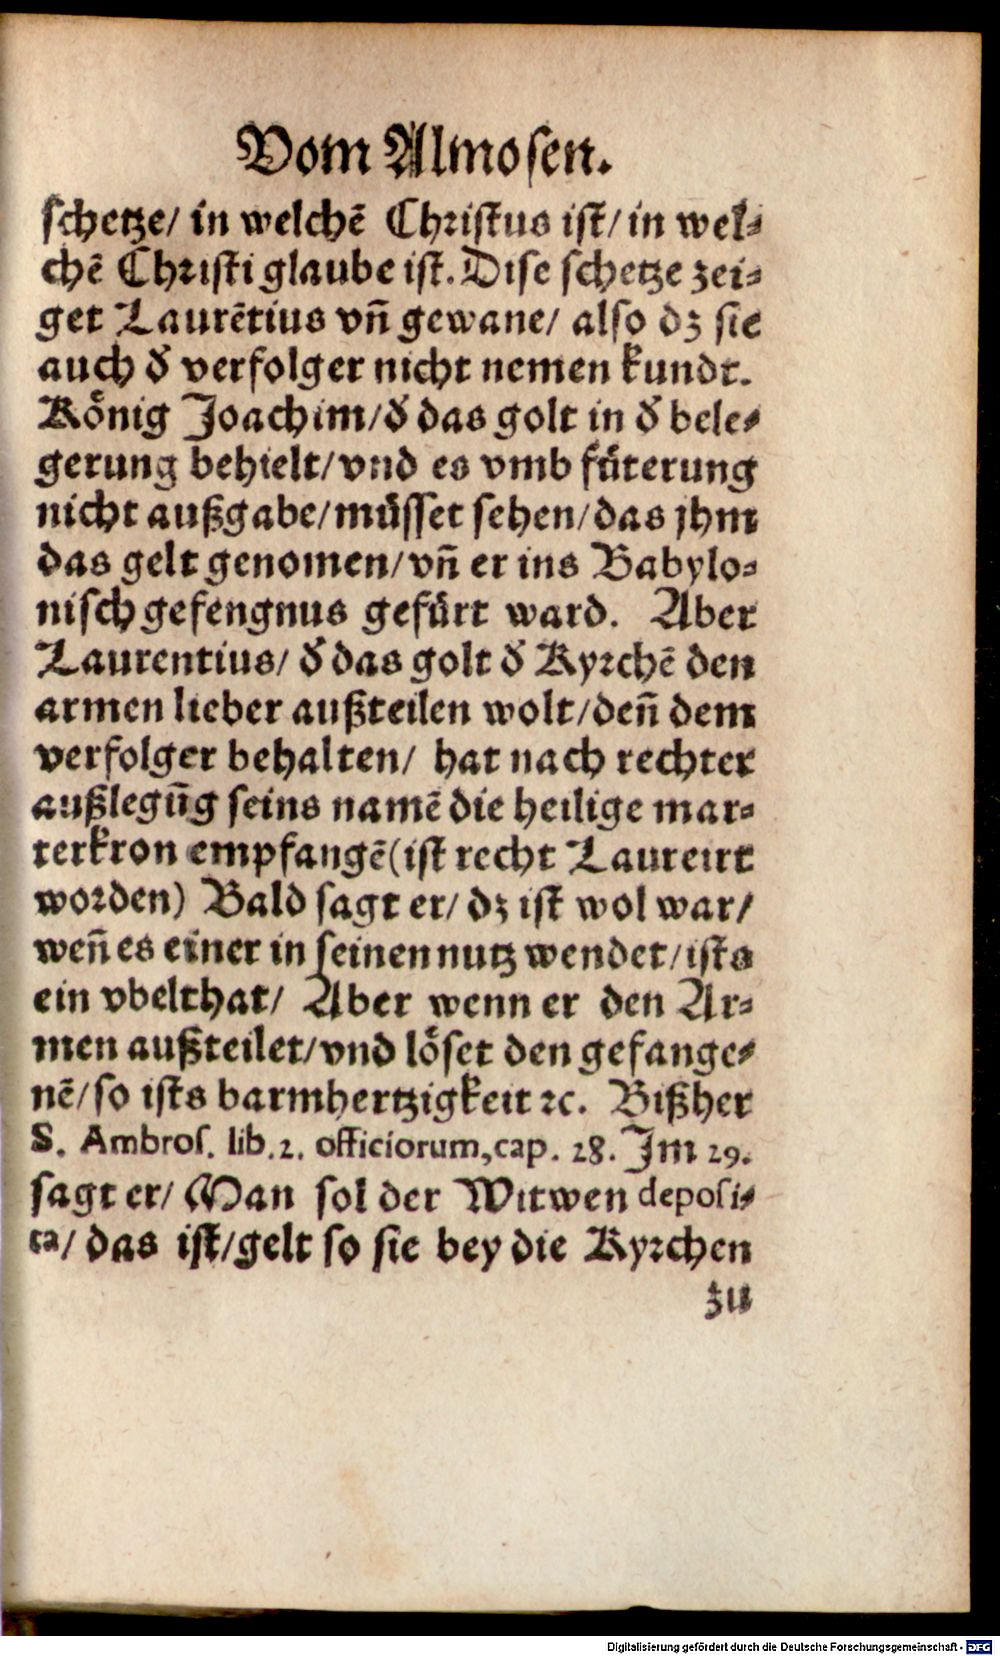 Vom Almosen.
schetze/ in welchē Christus ist/ in wel⸗
chē Christi glaube ist. Dise schetze zei⸗
get Laurētius vn̄ gewane/ also dz sie
auch d̕ verfolger nicht nemen kundt.
Koͤnig Joachim/ d̕ das golt in d̕ bele⸗
gerung behielt/ vnd es vmb fuͤterung
nicht außgabe/ muͤsset sehen/ das jhm
das gelt genomen/ vn̄ er ins Babylo⸗
nisch gefengnus gefuͤrt ward. Aber
Laurentius/ d̕ das golt d̕ Kyrchē den
armen lieber außteilen wolt/ den̄ dem
verfolger behalten/ hat nach rechter
außlegūg seins namē die heilige mar⸗
terkron empfangē (ist recht Laureirt
worden) Bald sagt er/ dz ist wol war/
wen̄ es einer in seinen nutz wendet/ ists
ein vbelthat/ Aber wenn er den Ar⸗
men außteilet/ vnd loͤset den gefange⸗
nē/ so ists barmhertzigkeit ꝛc. Bißher
S. Ambros. lib. 2. officiorum, cap. 28. Im 29.
sagt er/ Man sol der Witwen deposi⸗
ta/ das ist/ gelt so sie bey die Kyrchen
zu
Digitalisierung gefördert durch die Deutsche Forschungsgemeinschaft - DFG